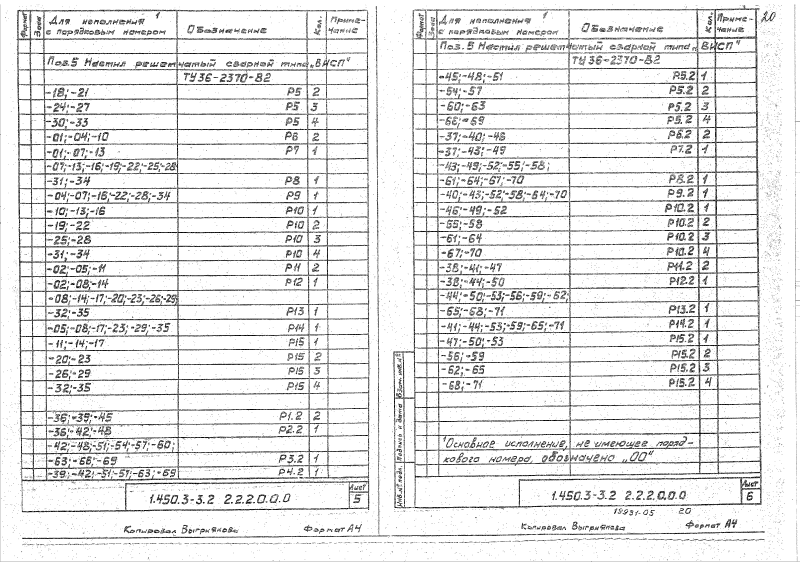 Формат
Зона
Для исполнения ¹ с порядковым номером
Обозначение
Кол.
Приме-
чание
Поз.5 Настил решетчатый сварной типа „ВИСП"
ТУ 36-2370-82
-18;-21 P5 2
-24;-27 P5 3
-30;-33 P5 4
-01;-04;-10 P6 2
-01;-07;-13 P7 1
-07;-13;-16;-19;-22;-25;-28
-31;-34 P8 1
-04;-07;-16;-22;-28;-34 P9 1
-10;-13;-16 P10 1
-19;-22 P10 2
-25;-28 P10 3
-31;-34 P10 4
-02;-05;-11 P11 2
-02;-08;-14 P12 1
-08;-14;-17;-20;-23;-26;-29
-32;-35 P13 1
-05;-08;-17;-23;-29;-35 P14 1
-11;-14;-17 P15 1
-20;-23 P15 2
-26;-29 P15 3
-32;-35 P15 4
-36;-39;-45 P1.2 2
-36;-42;-48 P2.2 1
-42;-48;-51;-54;-57;-60;
-63;-66;-69 P3.2 1
-39;-42;-51;-57;-63;-69 P4.2 1
1.450.3-3.2 2.2.2.0.0.0
Лист
5
Копировал Выгриянова Формат А4
20
Формат
Зона
Для исполнения ¹ с порядковым номером
Обозначение
Кол.
Приме-
чание
Поз.5 Настил решетчатый сварной типа „ВИСП"
ТУ 36-2370-82
-45;-48;-51 P5.2 1
-54;-57 P5.2 2
-60;-63 P5.2 3
-66;-69 P5.2 4
-37;-40;-46 P6.2 2
-37;-43;-49 P7.2 1
-43;-49;-52;-55;-58;
-61;-64;-67;-70 P8.2 1
-40;-43;-52;-58;-64;-70 P9.2 1
-46;-49;-52 P10.2 1
-55;-58 P10.2 2
-61;-64 P10.2 3
-67;-70 P10.2 4
-38;-41;-47 P11.2 2
-38;-44;-50 P12.2 1
-44;-50;-53;-56;-59;-62;
-65;-68;-71 P13.2 1
-41;-44;-53;-59;-65;-71 P14.2 1
-47;-50;-53 P15.2 1
-56;-59 P15.2 2
-62;-65 P15.2 3
-68;-71 P15.2 4
¹Основное исполнение, не имеющее поряд-
кового номера, обозначено „00"
Инв.№ подл. Подпись и дата Взам.инв.№
1.450.3-3.2 2.2.2.0.0.0
Лист
6
18931-05 20
Копировал Выгриянова Формат А4